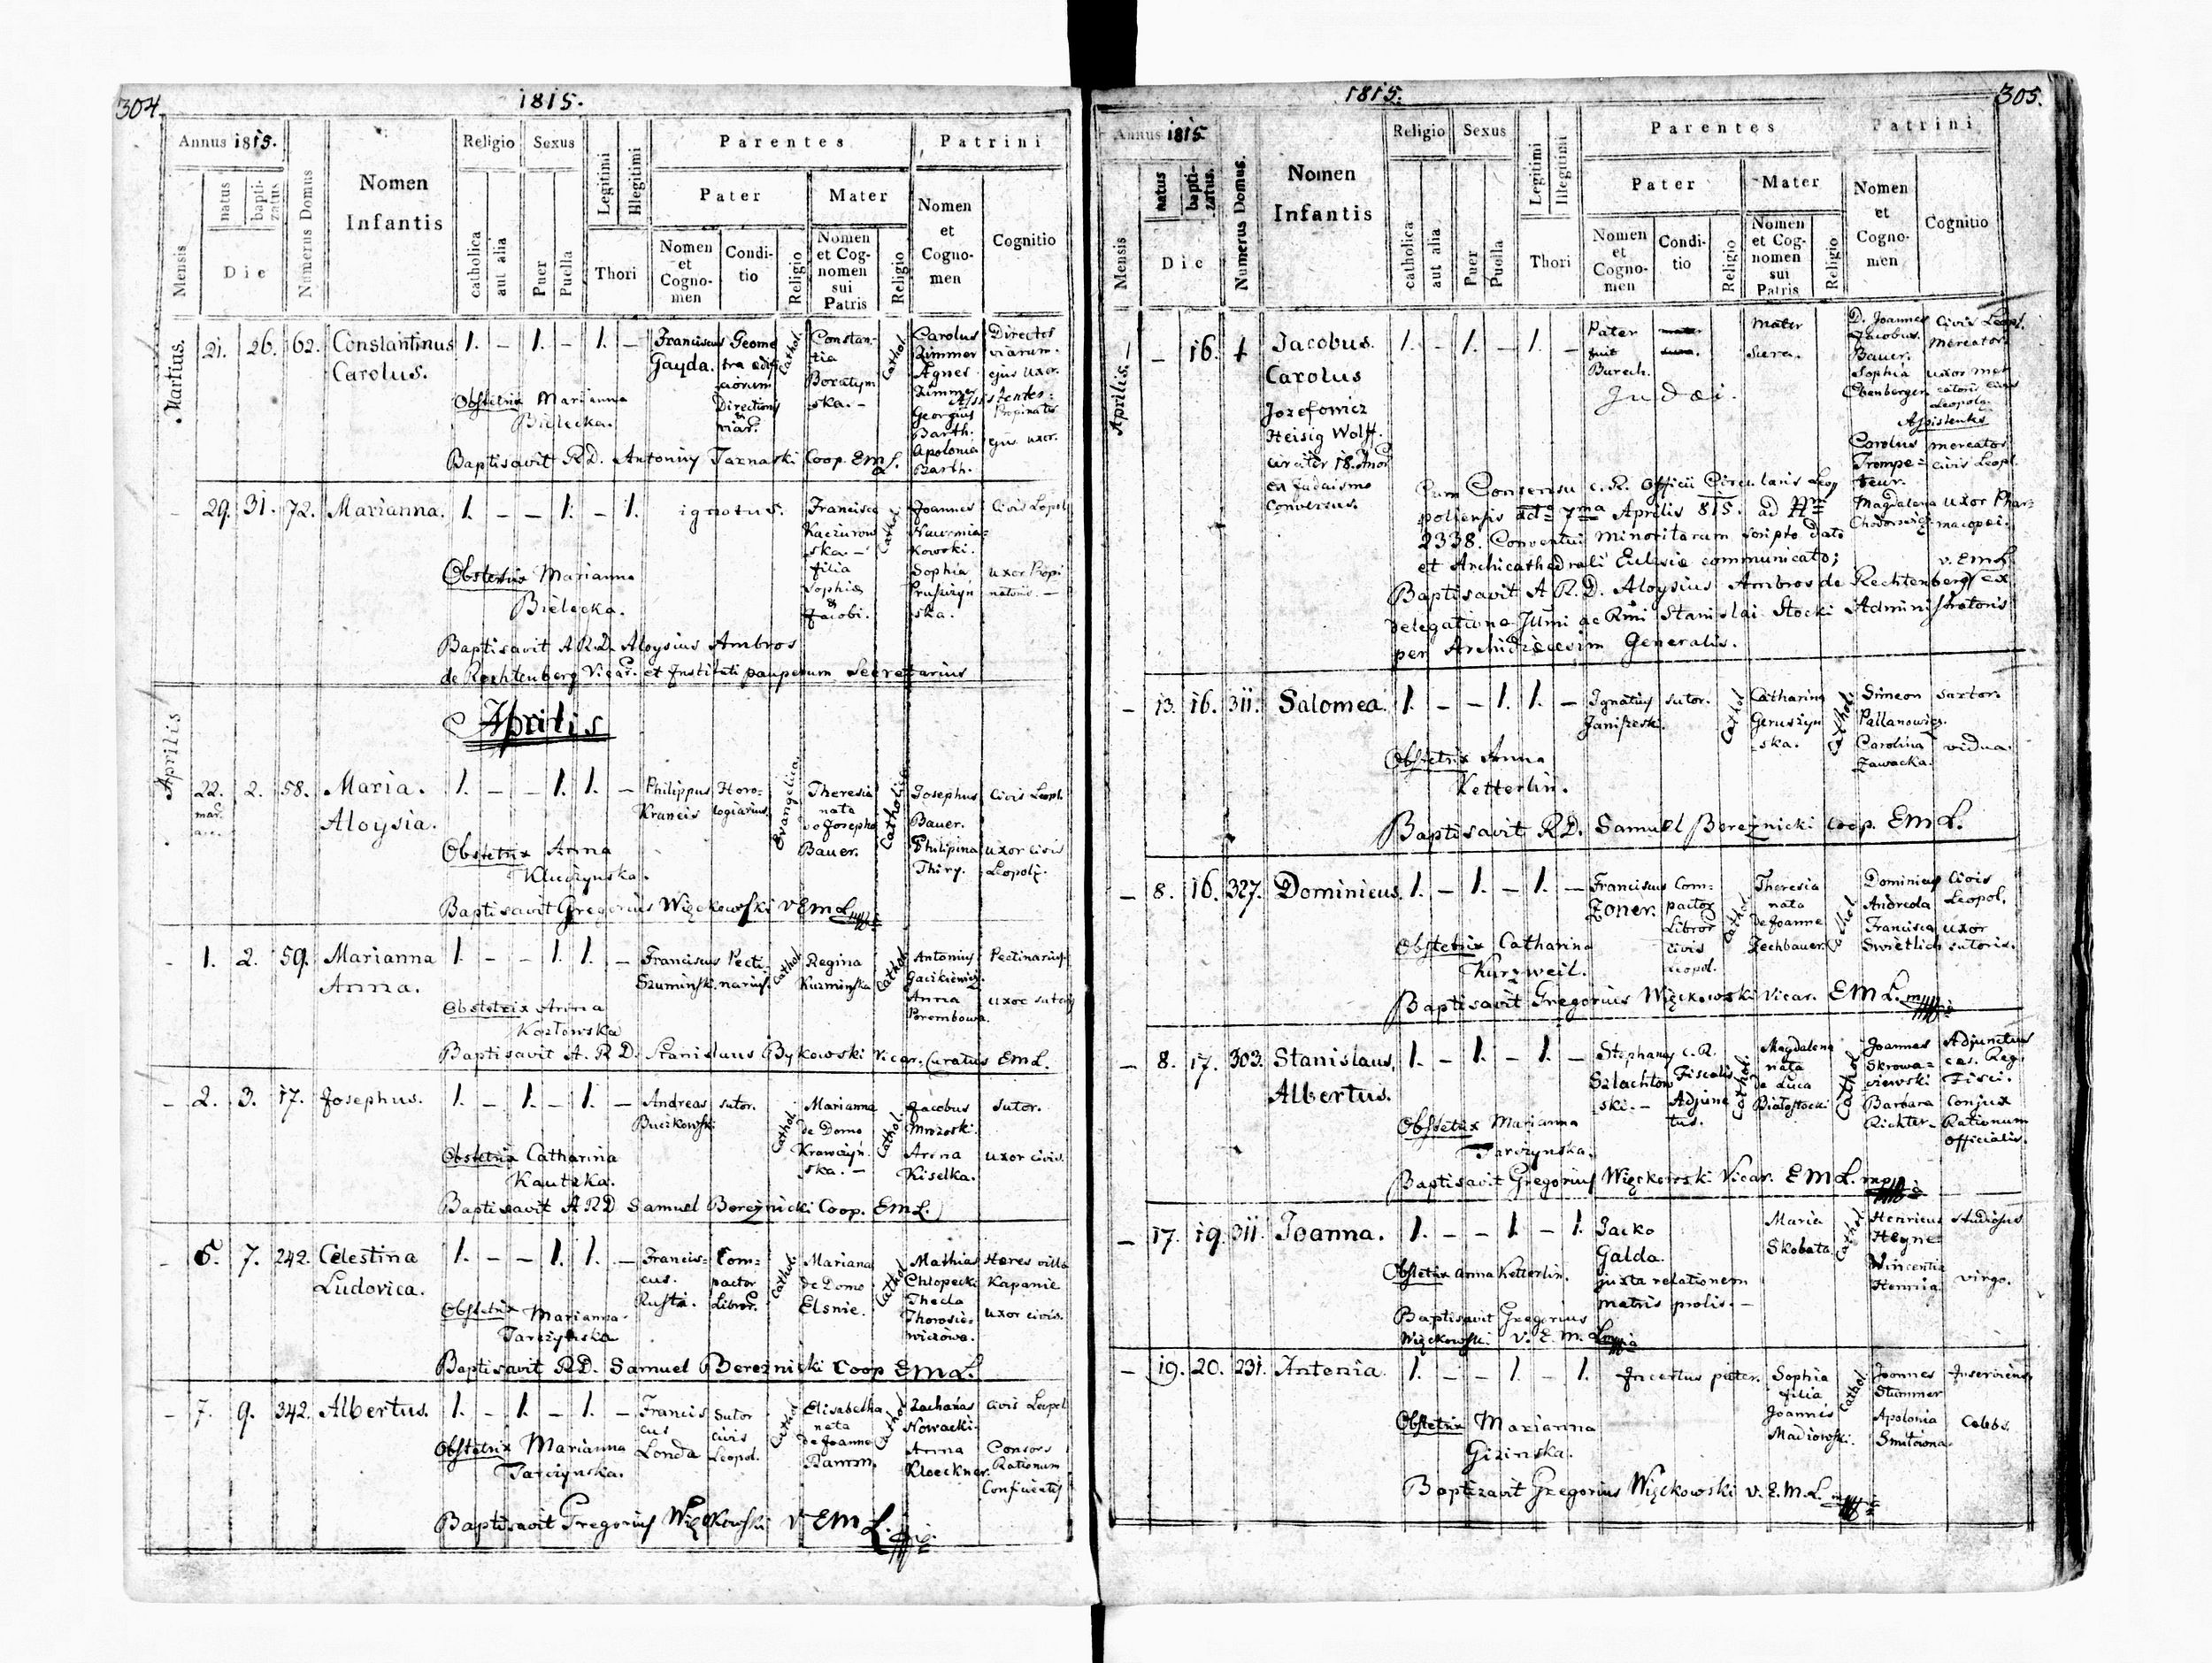 304.
1815.
Annus 1815.
Mensis
natus
bapti-
zatus
Die
Numerus Domus
Nomen
Infantis
Religio
catholica
aut alia
Sexus
Puer
Puella
Legitimi
Illegitimi
Thori
Parentes
Pater
Nomen
et
Cogno-
men
Condi-
tio
Religio
Mater
Nomen
et Cog-
nomen
sui
Patris
Religio
Patrini
Nomen
et
Cogno-
men
Cognitio
Martius.
21. 26. 62. Constantinus 1. - 1. - 1. -
Carolus.
Franciscus
Gayda.
Geome
tra
Direction
viar.
Cathol.
Constan-
tia
ska. -
Cathol.
Carolus
Zimmer
Agnes
Zimmer
Director
viarum.
ejus uxor.
Assistentes:
Georgius
Barth.
Apolonia
Barth.
Propinator
ejus uxor.
Obstetrix Marianna
Bielecka.
Baptisavit RD. Antonius Tarnaski Coop. EML.
- 29. 31. 72. Marianna. 1. - - 1. - 1. ignotus.
Francisca
Kaczurow
ska. -
filia
Sophiæ
&
Jacobi.
Cathol.
Joannes
kowski.
Sophia
Pruszyń
ska.
Civis Leopol
uxor Propi
natoris. -
Obstetrix Marianna
Bielecka.
Baptisavit A R.D. Aloysius Ambros
de Rechtenberg Vicar. et Instituti pauperum Secretarius
Aprilis
Aprilis
22. 2. 58. Maria. 1. - - 1. 1. -
mar.
Aloysia.
Philippus
Krancis
Horo-
logiarius.
Evangelica
Theresia
nata
de Josepho
Bauer.
Catholica
Josephus
Bauer.
Philipina
Thiry.
Civis Leopl.
uxor civis
Leopol.
Obstetrix Anna
Kluczynska.
Baptisavit Gregorius Więckowski V EML mppr
- 1. 2. 59. Marianna 1. - - 1. 1. -
Anna.
Franciscus
Szuminski.
Pecti-
narius.
Cathol.
Regina
Kuzminska
Cathol.
Antonius
Gacikiewicz.
Anna
Porembowa.
Pectinarius.
uxor sutoris
Obstetrix Anna
Kozłowska
Baptisavit A. R D. Stanislaus Bykowski Vicar. Curatus EML.
- 2. 3. 17. Josephus. 1. - 1. - 1. -
Andreas
Buczkowski
sutor.
Cathol.
Marianna
de Domo
Krawczyn
ska. -
Cathol.
Jacobus
Mrozoski.
Anna
Kiselka.
Sutor.
uxor civis.
Obstetrix Catharina
Kautzka.
Baptisavit A R D Samuel Bereznicki Coop. EML.
- 5. 7. 242. Celestina 1. - - 1. 1. -
Ludovica.
Francis-
cus.
Rusta.
Com-
pactor
Libror.
Cathol.
Mariana
de Domo
Elsnie.
Cathol.
Mathias
Chlopecki
Thecla
Thorosie-
wiczowa.
Hæres villæ
Kapanie
uxor civis.
Obstetrix Marianna
Tarczynska
Baptisavit RD. Samuel Bereznicki Coop EML.
- 7. 9. 342. Albertus. 1. - 1. - 1. -
Francis
cus
Londa
Sutor
civis
Leopol.
Cathol
Elisabetha
nata
de Joanne
Damm.
Cathol
Zacharias
Nowacki.
Anna
Kloeckner.
Civis Leopol
Consors
Rationum
Conficientis
Obstetrix Marianna
Tarczynska.
Baptisavit Gregorius Więckowski V EML.
1815.
305.
Annus 1815
Mensis
natus
bapti-
zatus.
Die
Numerus Domus.
Nomen
Infantis
Religio
catholica
aut alia
Sexus
Puer
Puella
Legitimi
Illegitimi
Thori
Parentes
Pater
Nomen
et
Cogno-
men
Condi-
tio
Religio
Mater
Nomen
et Cog-
nomen
sui
Patris
Religio
Patrini
Nomen
et
Cogno-
men
Cognitio
Aprilis.
- 16. 1 Jacobus. 1. - 1. - 1. -
Carolus
Jozefowicz
Heisig Wolff.
circiter 18. Anor
ex Judaismo
conversus.
Pater
fuit
Burech.
Mater
Sura.
Judæi.
D. Joannes
Jacobus.
Bauer.
Sophia
Ebenberger
Civis Leopl.
Mercator.
uxor mer
catoris civis
Leopolis
Assistentes
Carolus
Trompe-
teur.
Magdalena
Chodorowicz
mercator
civis Leopl.
uxor Phar-
macopei.
Cum Consensu c. R. Officii Circularis Leo
poliensis dcto 7ma Aprilis 815. ad Nrm
2338. Conventui Minoritarum scripto dato
et Archicathedrali Eclesiæ communicato;
Baptisavit A R. D. Aloysius Ambros de Rechtenberg v. EML (ex
delegatione Illmi ac Rmi Stanislai Stocki Administratoris
per Archidiecesim Generalis.
- 13. 16. 311. Salomea. 1. - - 1. 1. -
Ignatius
Janiszeski.
sutor.
Cathol
Catharina
Geruszyn
ska.
Cathol.
Simeon
Pallanowicz.
Carolina
Zawacka.
sartor.
vidua
Obstetrix Anna
Ketterlin.
Baptisavit RD. Samuel Bereznicki Coop. EML.
- 8. 16. 327. Dominicus. 1. - 1. - 1. -
Franciscus
Zoner.
Com-
pactor
Libror
civis
Leopol.
Cathol
Theresia
nata
de Joanne
Zechbauer.
Cathol
Dominicus
Andreola
Francisca
Swietlich
Civis
Leopol.
uxor
sutoris.
Obstetrix Catharina
Kurzweil.
Baptisavit Gregorius Więckowski Vicar. EML. mppr
- 8. 17. 303. Stanislaus, 1. - 1. - 1. -
Albertus.
Stephanus
Szlachtow
ski. -
c. R.
Fiscalis
Adjunc
tus.
Cathol.
Magdalena
nata
de Luca
Białostocki
Cathol
Joannes
Skrowa-
czewski
Barbara
Richter
Adjunctus
cæs. Reg.
Fisci.
Conjux
Rationum
officialis.
Obstetrix Marianna
Tarczynska.
Baptisavit Gregorius Więckowski Vicar. EML. mppr
- 17. 19. 311. Joanna. 1. - - 1. - 1.
Jacko
Galda.
juxta relationem
matris prolis. -
Maria
Skobata
Cathol
Henricus
Heyne
Vincentia
Hennig
studiosus
virgo.
Obstetrix Anna Ketterlin.
Baptisavit Gregorius
Więckowski V. E. M. L mppr
- 19. 20. 231. Antonia. 1. - - 1. - 1.
Incertus pater.
Sophia
filia
Joannis
Madiowski.
Cathol.
Joannes
Stummer
Apolonia
Smitowna
Inserviens,
Celebs.
Obstetrix Marianna
Gizinska.
Baptizavit Gregorius Więckowski V. E. M. L.